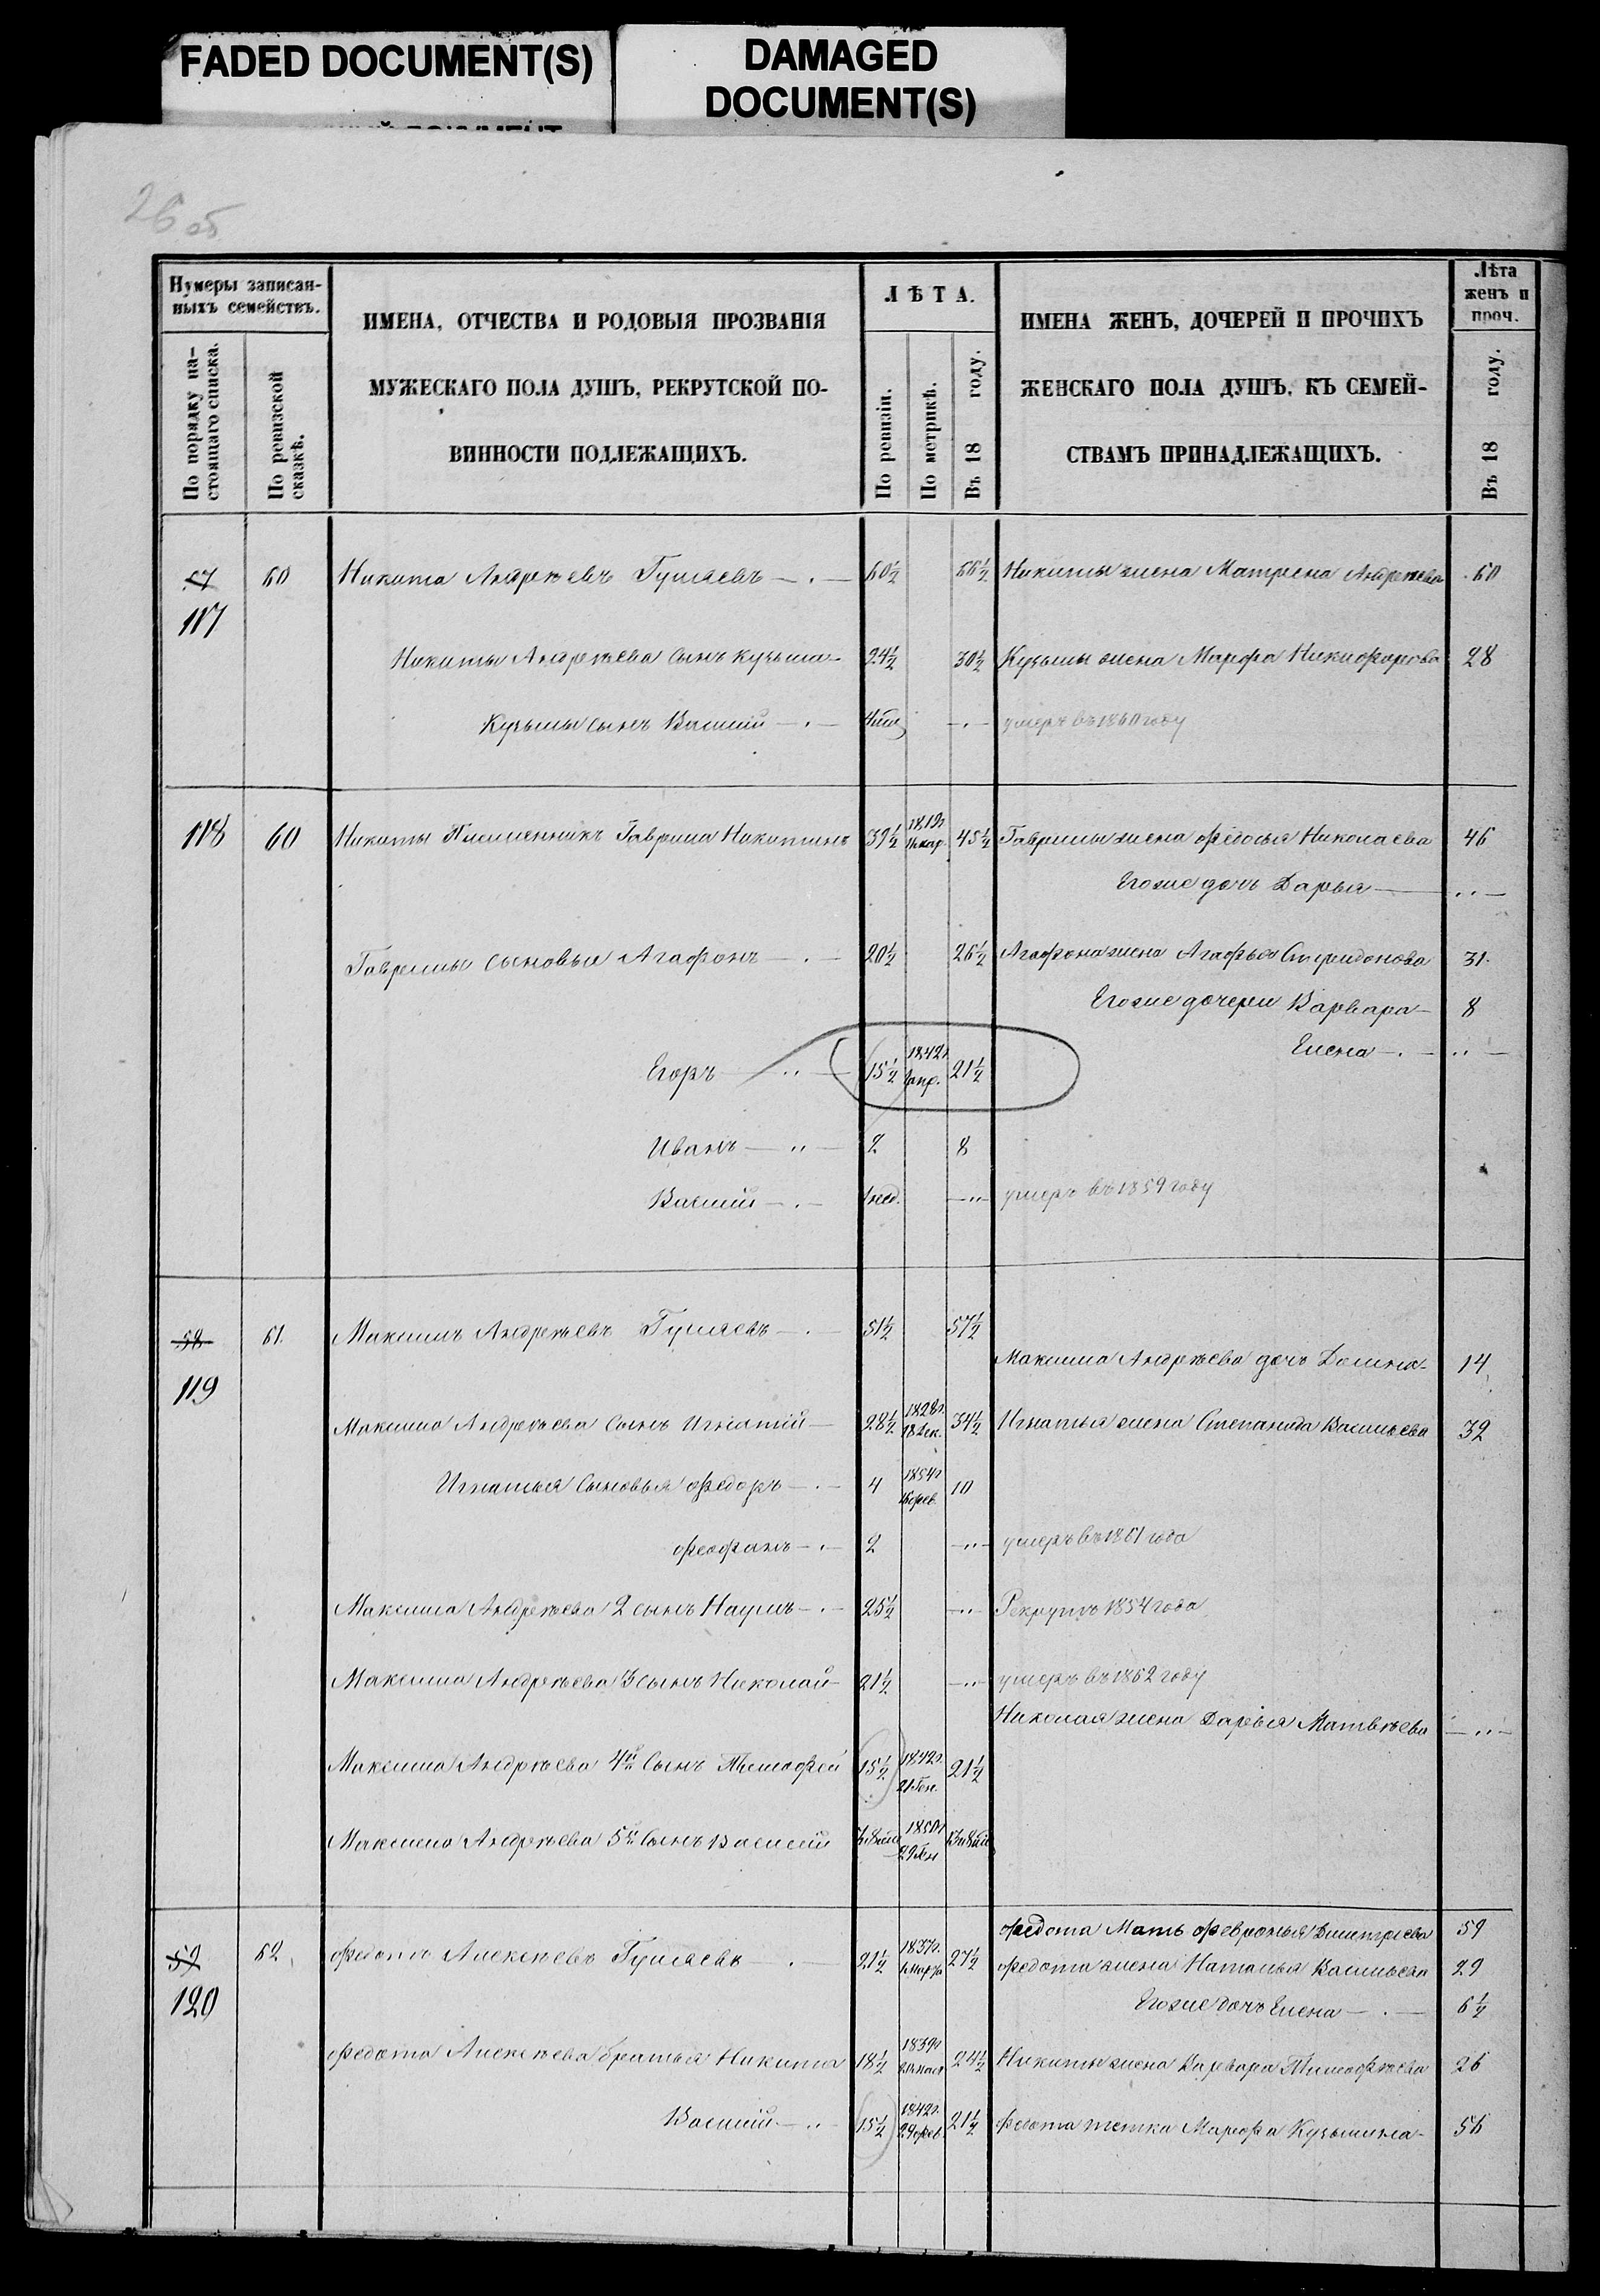 FADED DOCUMENT(S)
DAMAGED
DOCUMENT(S)
26 об
Нумеры записан-
ныхъ семействъ.
По порядку на-
стоящаго списка.
По ревизской
сказкѣ.
ИМЕНА, ОТЧЕСТВА И РОДОВЫЯ ПРОЗВАНІЯ
МУЖЕСКАГО ПОЛА ДУШЪ, РЕКРУТСКОЙ ПО-
ВИННОСТИ ПОДЛЕЖАЩИХЪ.
ЛѢТА.
По ревизіи.
По метрикѣ.
Въ 18 году.
ИМЕНА ЖЕНЪ, ДОЧЕРЕЙ И ПРОЧИХЪ
ЖЕНСКАГО ПОЛА ДУШЪ, КЪ СЕМЕЙ-
СТВАМЪ ПРИНАДЛЕЖАЩИХЪ.
Лѣта
женъ и
проч.
Въ 18 году.
57 60 Никита Андреевъ Гуляевъ 60½ 66½ Никиты жена Матрена Андреева 60
117
Никиты Андреева сынъ Кузьма 24½ 30½ Кузьмы жена Марфа Никифорова 28
Кузьмы сынъ Василий умеръ въ 1860 году
118 60 Никиты Племенникъ Гаврила Никитинъ 39½ 1819г. 45½ Гаврилы жена Федосья Николаева 46
Егоже дочь Дарья
Гаврилы сыновья Агафонъ 20½ 26½ Агафона жена Агафья Спиридонова 31
Егоже дочери Варвара 8
Елена
Егоръ 15½ 1842г. апр. 21½
Иванъ 2 8
Василий 1 нед. умеръ въ 1859 году
58 61. Максимъ Андреевъ Гуляевъ 51½ 57½
Максима Андреева дочь Домна 14
119
Максима Андреева сынъ Игнатий 28½ 1828г. 18 Дек. 34½ Игнатья жена Степанида Васильева 32
Игнатья сыновья Федоръ 4 1854г. фев. 10
Феофанъ 2 умеръ въ 1861 года
Максима Андреева 2 сынъ Наумъ 25½ Рекрутъ 1854 года
Максима Андреева 3 сынъ Николай 21½ умеръ въ 1862 году
Николая жена Дарья Матвеева
Максима Андреева 4й сынъ Тимофей 15½ 1842г. 21 Ген. 21½
Максима Андреева 5й сынъ Василий 1850г 29 Ген
Федота Мать Февронья Дмитриева 59
59 62 Федотъ Алексеевъ Гуляевъ 21½ 1837г. Марта 27½ Федота жена Наталья Васильева 29
120
Егоже дочь Елена 6½
Федота Алексеева братья Никита 18½ 1839г. 24½ Никиты жена Варвара Тимофеева 26
Василий 15½ 1842г. фев. 21½ Федота тетка Марфа Кузьмина 56